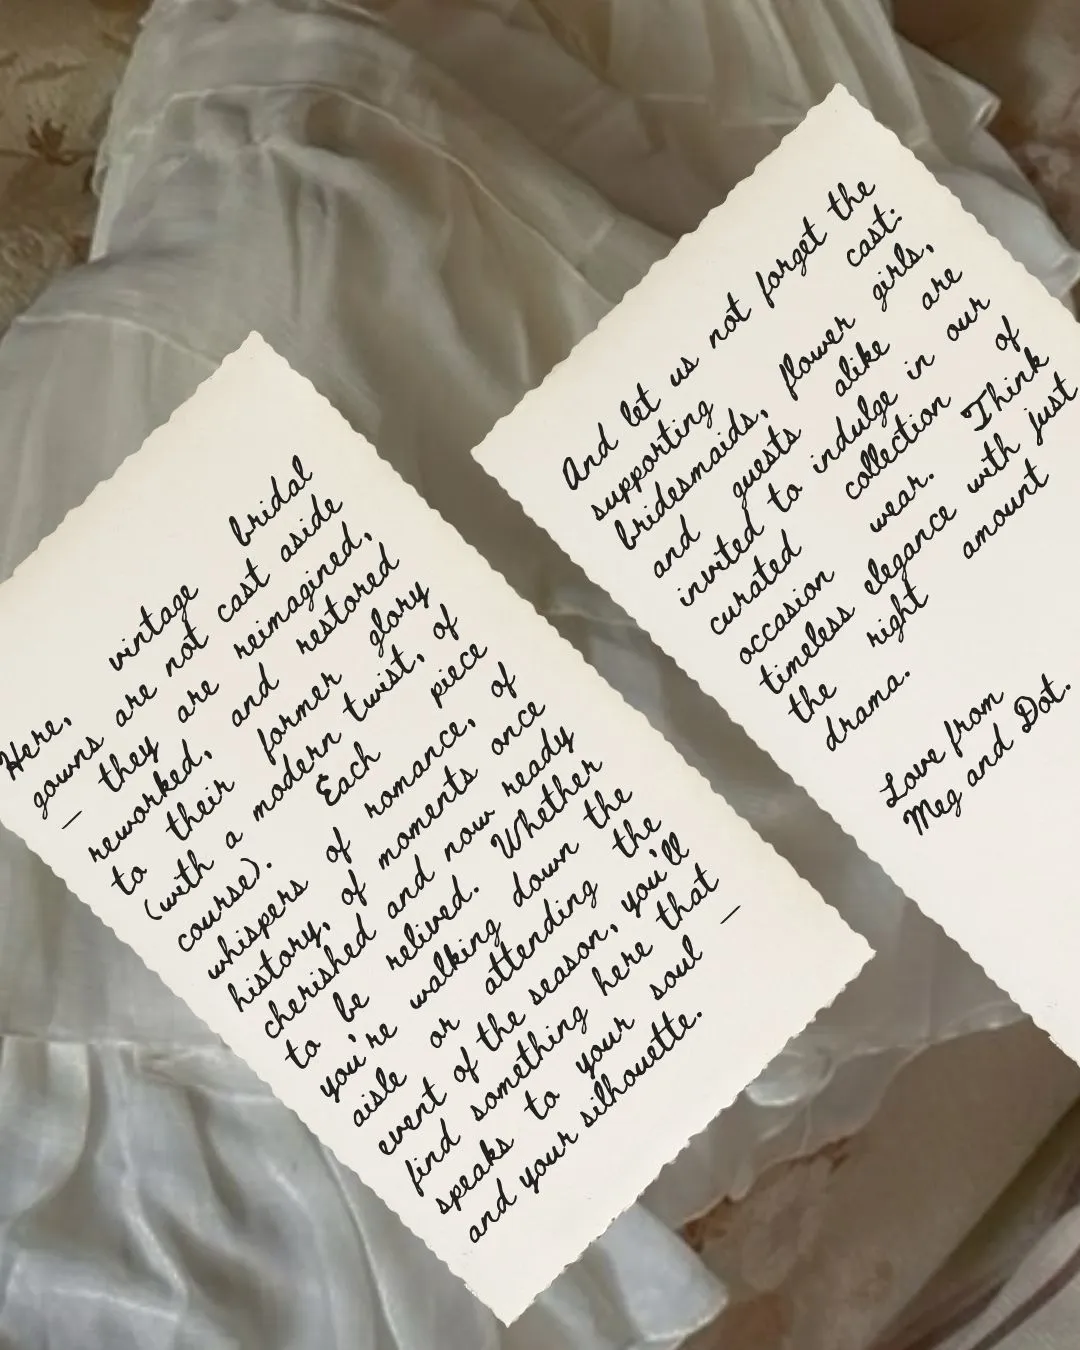 Here, vintage bridal
gowns are not cast aside
— they are reimagined,
reworked, and restored
to their former glory
(with a modern twist, of
course). Each piece
whispers of romance, of
history, of moments once
cherished and now ready
to be relived. Whether
you're walking down the
aisle or attending the
event of the season, you'll
find something here that
speaks to your soul —
and your silhouette.
And let us not forget the
supporting cast:
bridesmaids, flower girls,
and guests alike are
invited to indulge in our
curated collection of
occasion wear. Think
timeless elegance with just
the right amount
drama.
Love from
Meg and Dot.